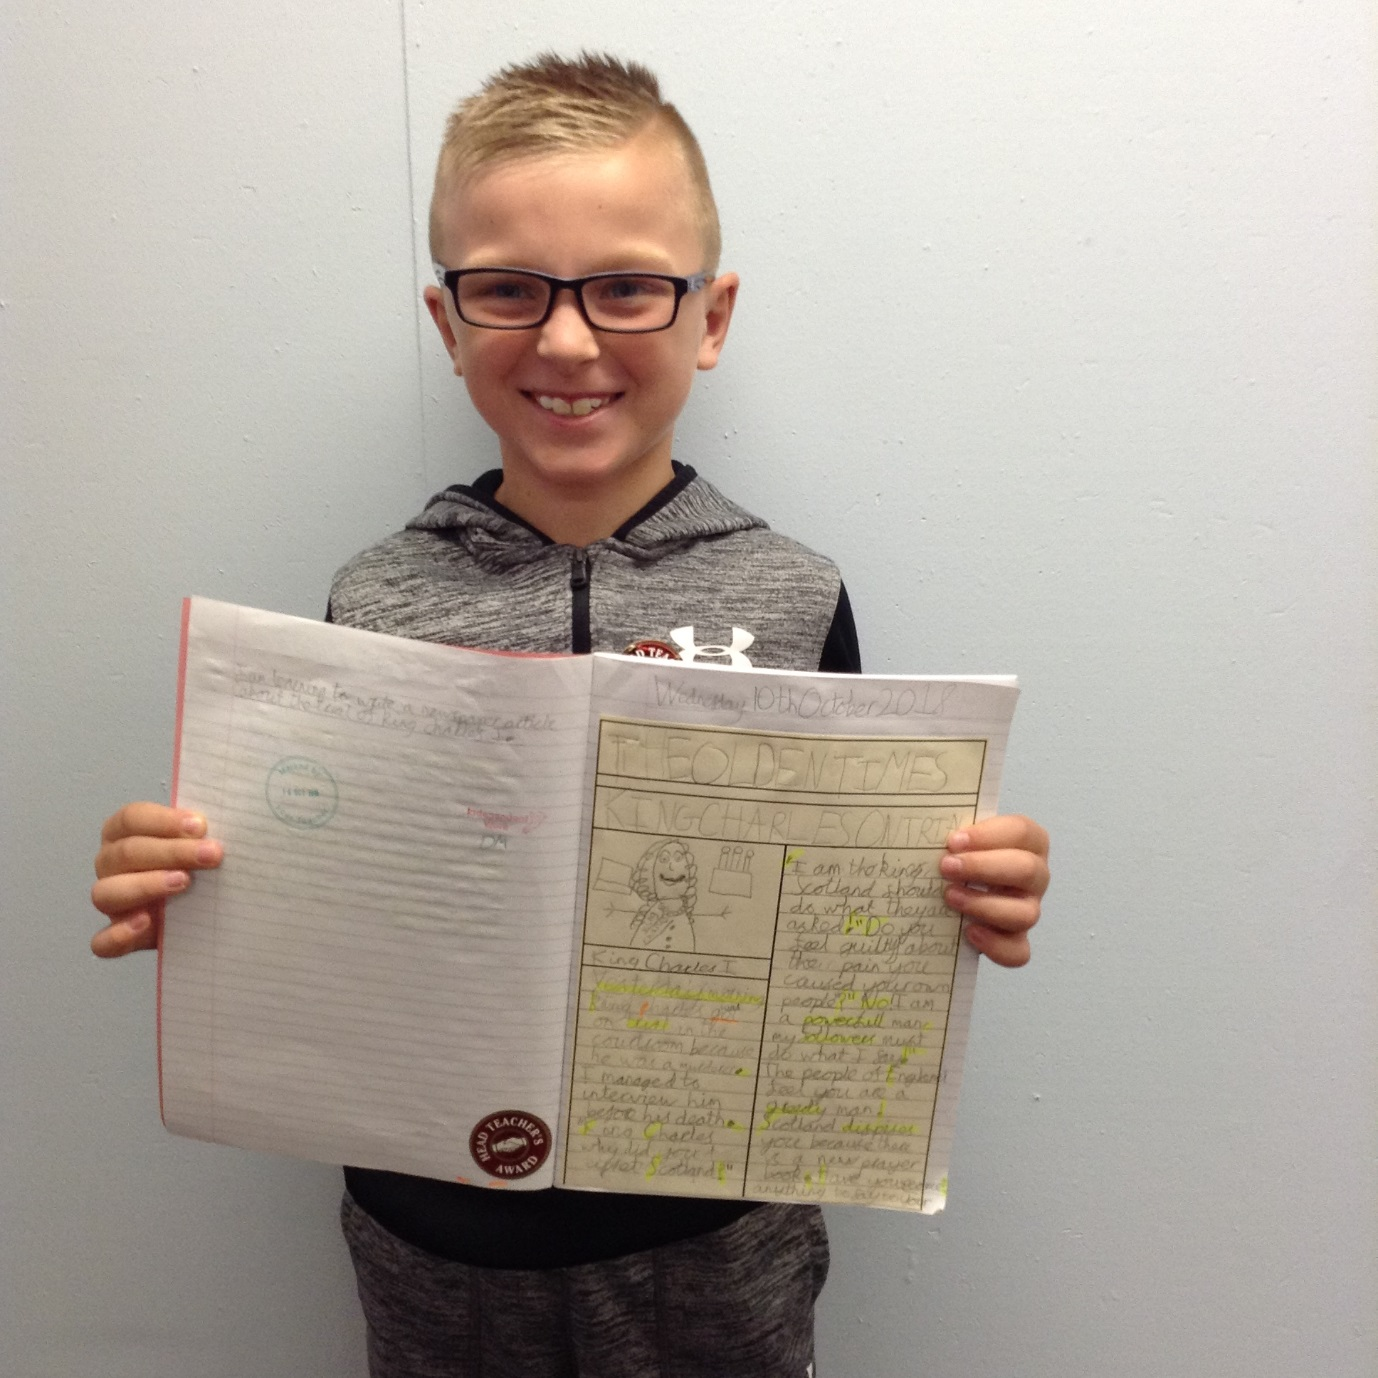 I am learning to write a newspaper article
about the trial of King Charles I.
Wednesday 10th October 2018
THE OLDEN TIMES
KING CHARLES ON TRI
King Charles I
Yesterday morning
King Charles
on trial in the
courtroom because
he was a murderer.
I managed to
interview him
before his death.
"King Charles
why did you
upset Scotland?"
"I am the king,
Scotland should
do what they are
asked." "Do you
feel guilty about
the pain you
caused your own
people?" "No! I am
a powerfull man
my followers must
do what I say."
The people of England
feel you are a
greedy man!
Scotland dispise
you because there
is a new prayer
book. Have you
anything to say
HEAD TEACHER'S
AWARD